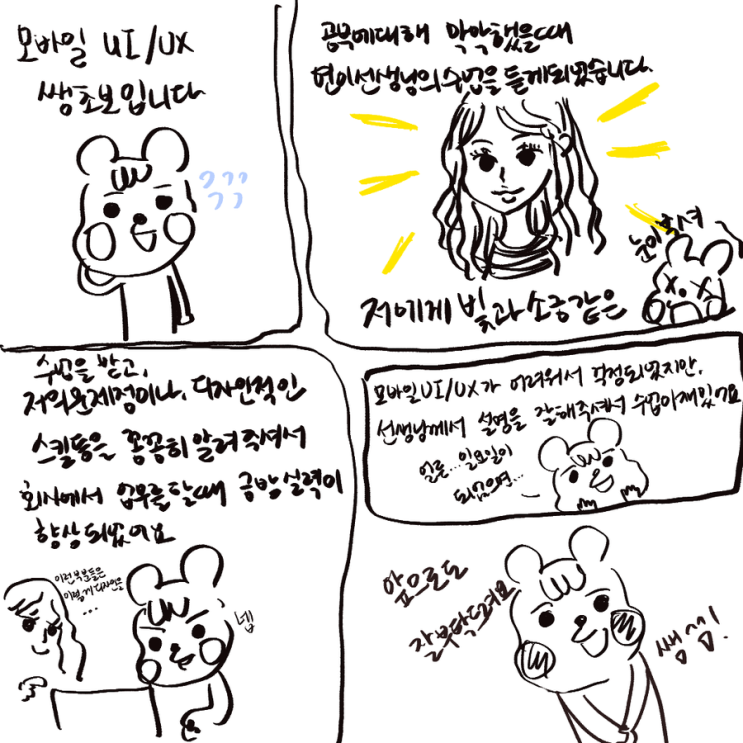 모바일 UI/UX
쌩초보입니다
공부에대해 막막했을때
현이선생님의 수업을 듣게되었습니다.
눈이부셔
저에게 빛과소금같은
수업을 받고,
저의문제점이나, 디자인적인
스킬등을 꼼꼼히 알려주셔서
회사에서 업무를할때 금방실력이
향상되었어요
이런부분들은
이렇게 디자인을
...
넵
모바일UI/UX가 어려워서 걱정되었지만,
선생님께서 설명을 잘해주셔서 수업이재밌어요
얼른...일요일이
되었으면...
앞으로도
잘부탁드려요
쌤!